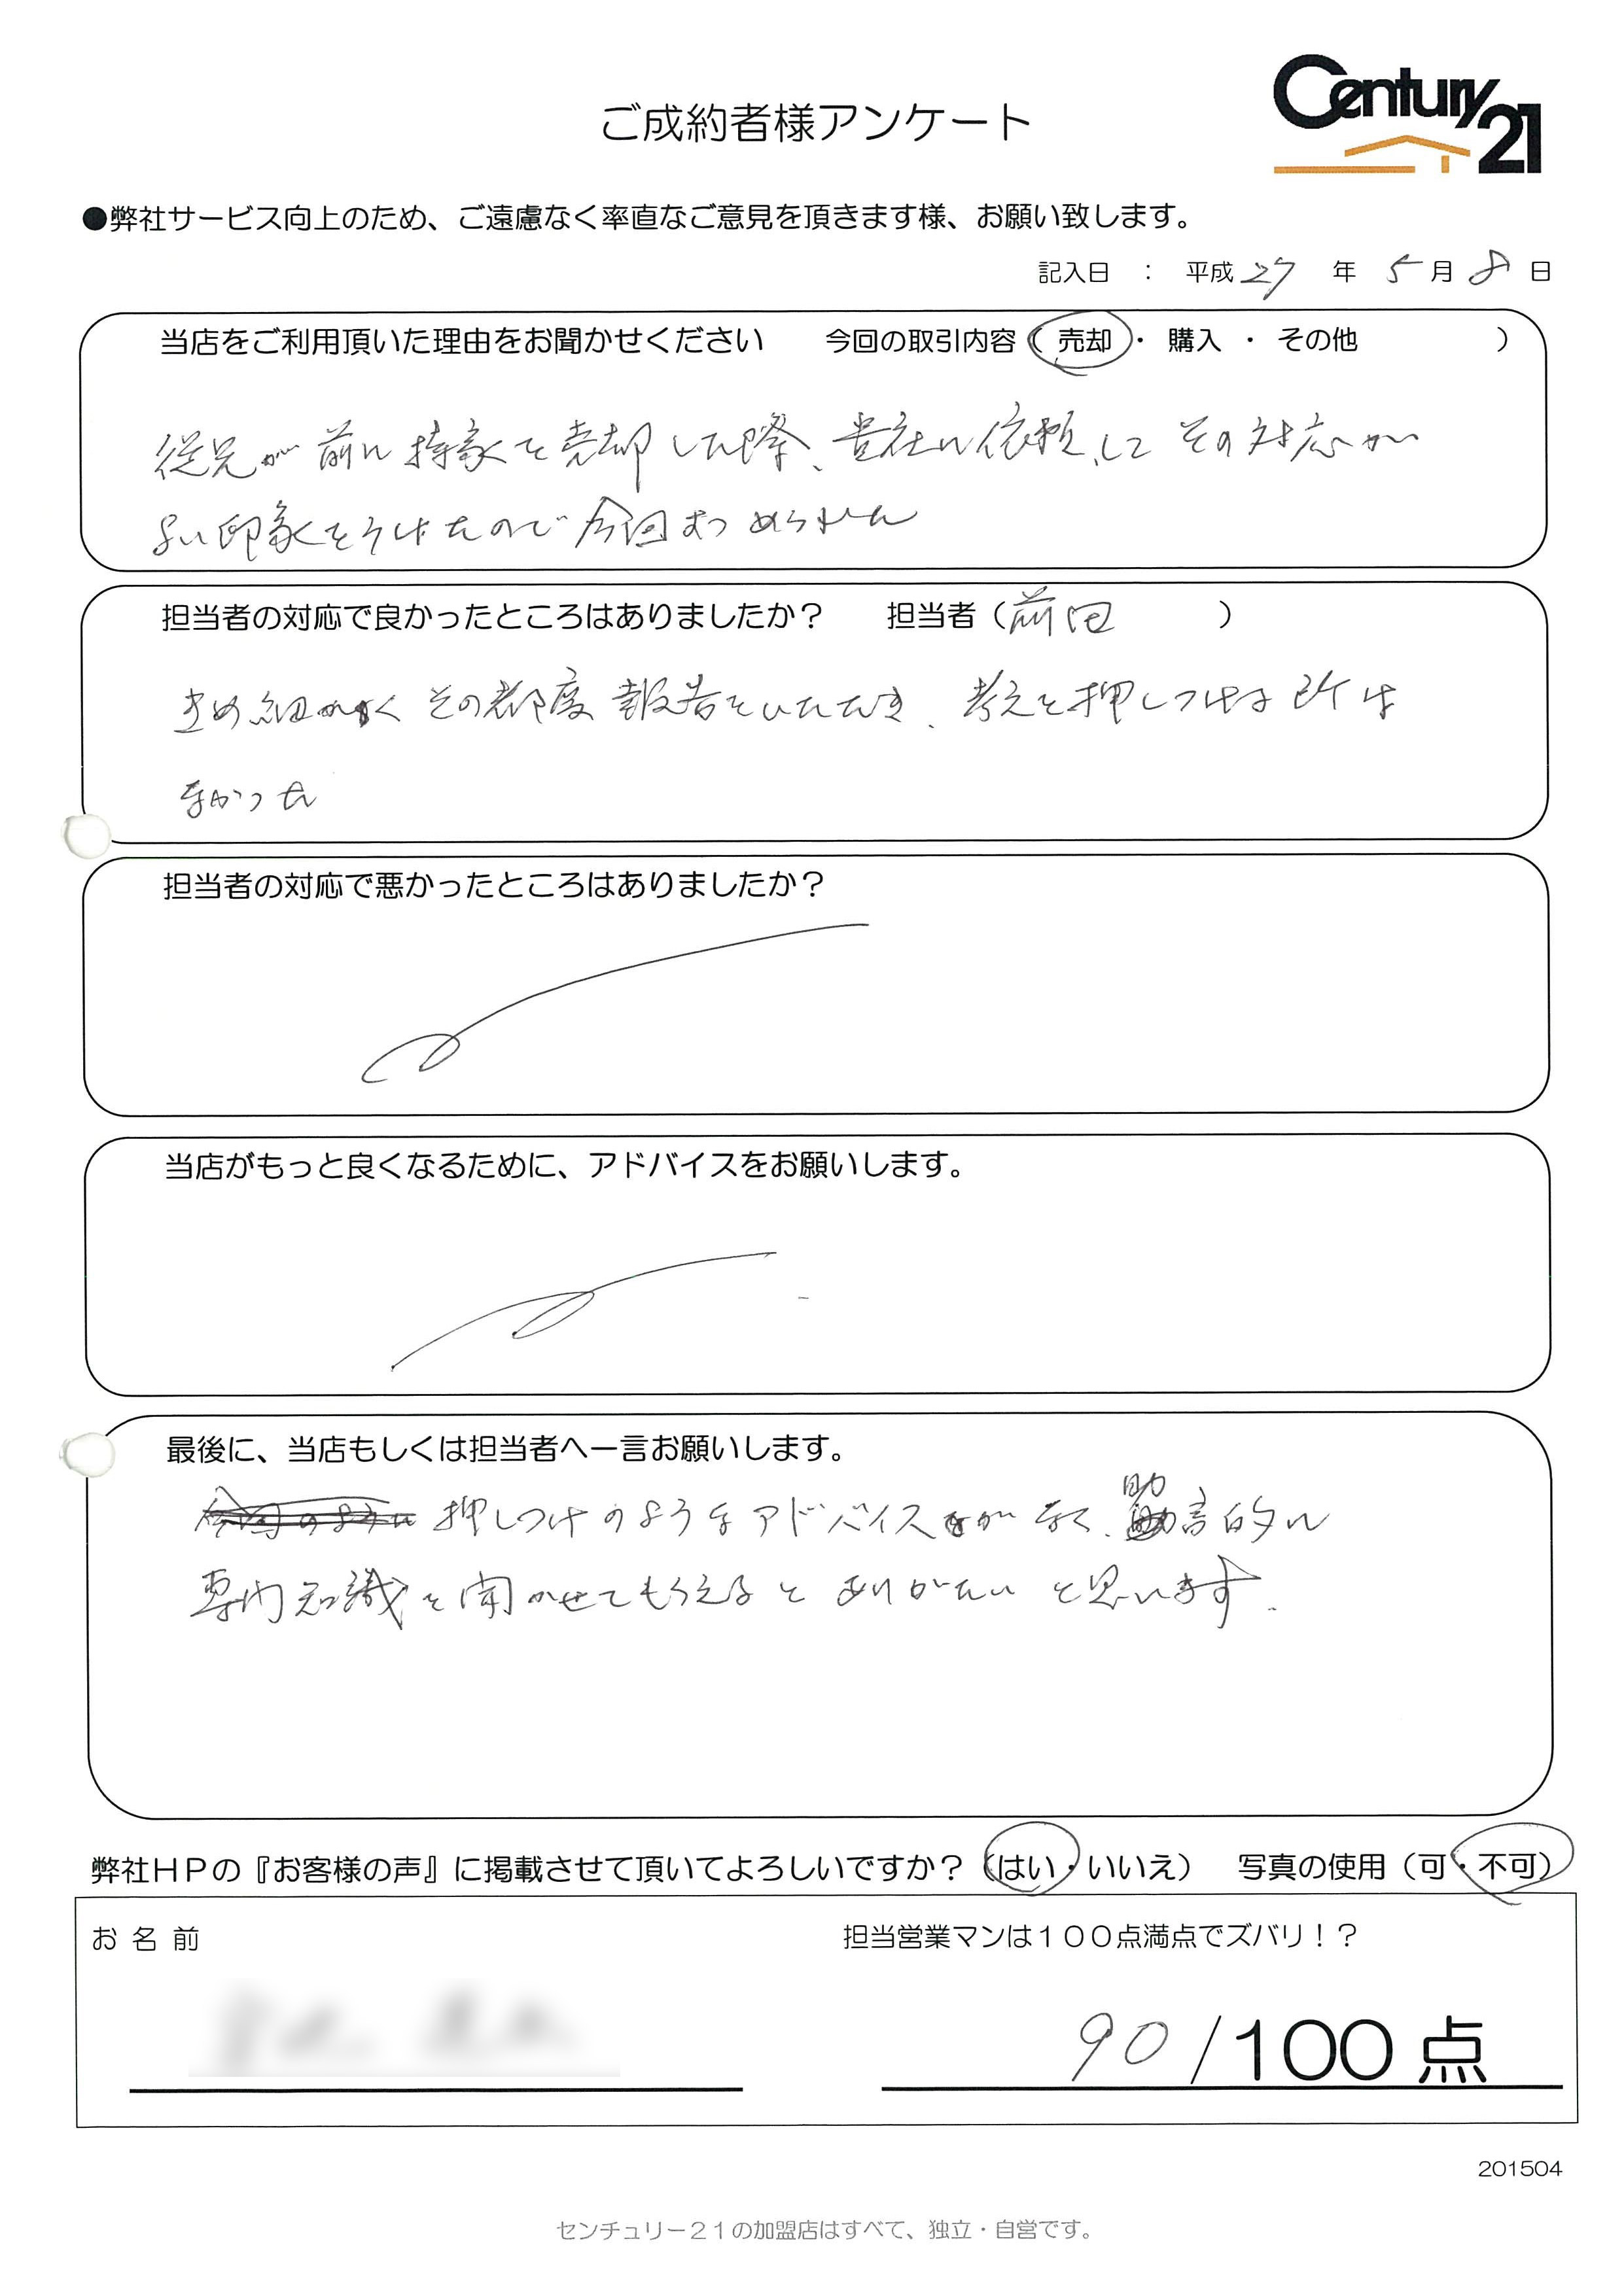 Century 21
ご成約者様アンケート
●弊社サービス向上のため、ご遠慮なく率直なご意見を頂きます様、お願い致します。
記入日 : 平成 27 年 5 月 8 日
当店をご利用頂いた理由をお聞かせください 今回の取引内容( 売却 ・ 購入 ・ その他 )
従兄が前に持家を売却した際、貴社に依頼して その対応が
よい印象をうけたので今回き
担当者の対応で良かったところはありましたか? 担当者(前田 )
きめ細かく その都度 報告をいただき、考えを押しつける所は
なかった
担当者の対応で悪かったところはありましたか?
当店がもっと良くなるために、アドバイスをお願いします。
最後に、当店もしくは担当者へ一言お願いします。
今回のように 押しつけのようなアドバイスがなく、助言的に
専門知識を聞かせてもらえると ありがたい と思います.
弊社HPの『お客様の声』に掲載させて頂いてよろしいですか?(はい・いいえ) 写真の使用(可・不可)
お名前 担当営業マンは100点満点でズバリ!?
90/100点
201504
センチュリー21の加盟店はすべて、独立・自営です。